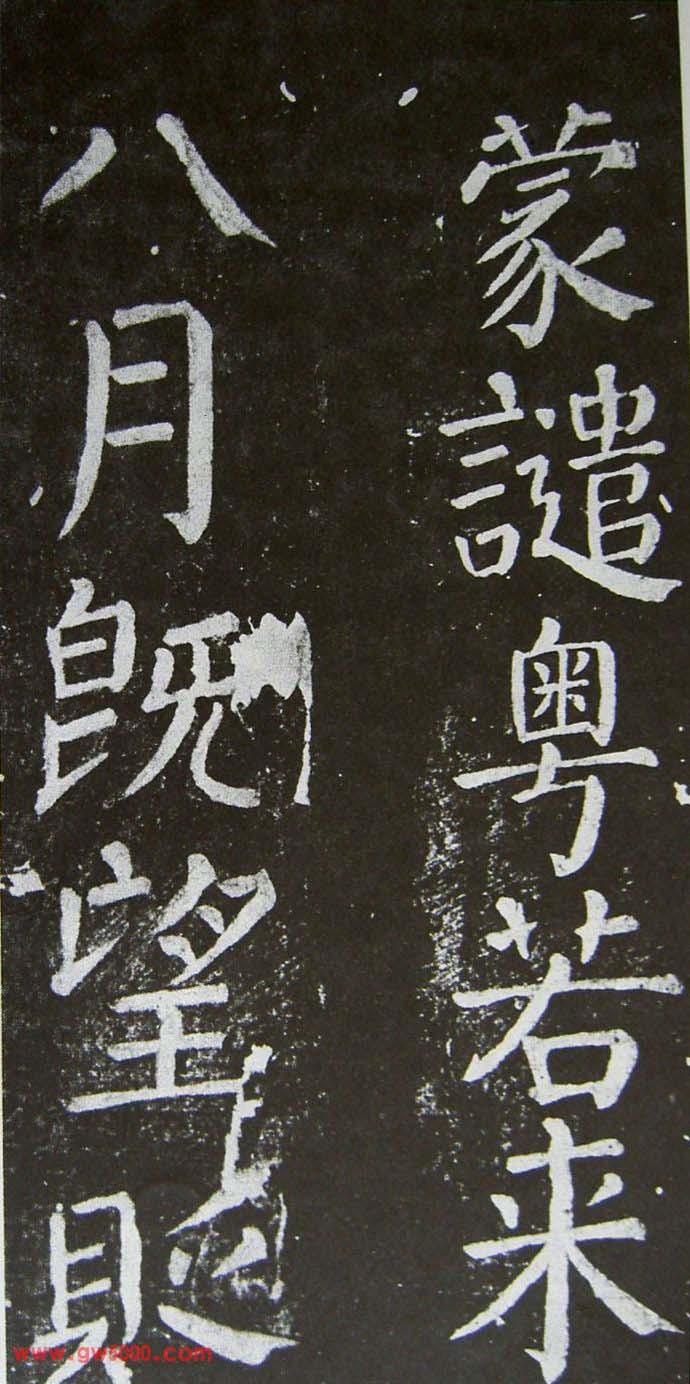 蒙譴粤若来
八月既望貶
www.gw5000.com